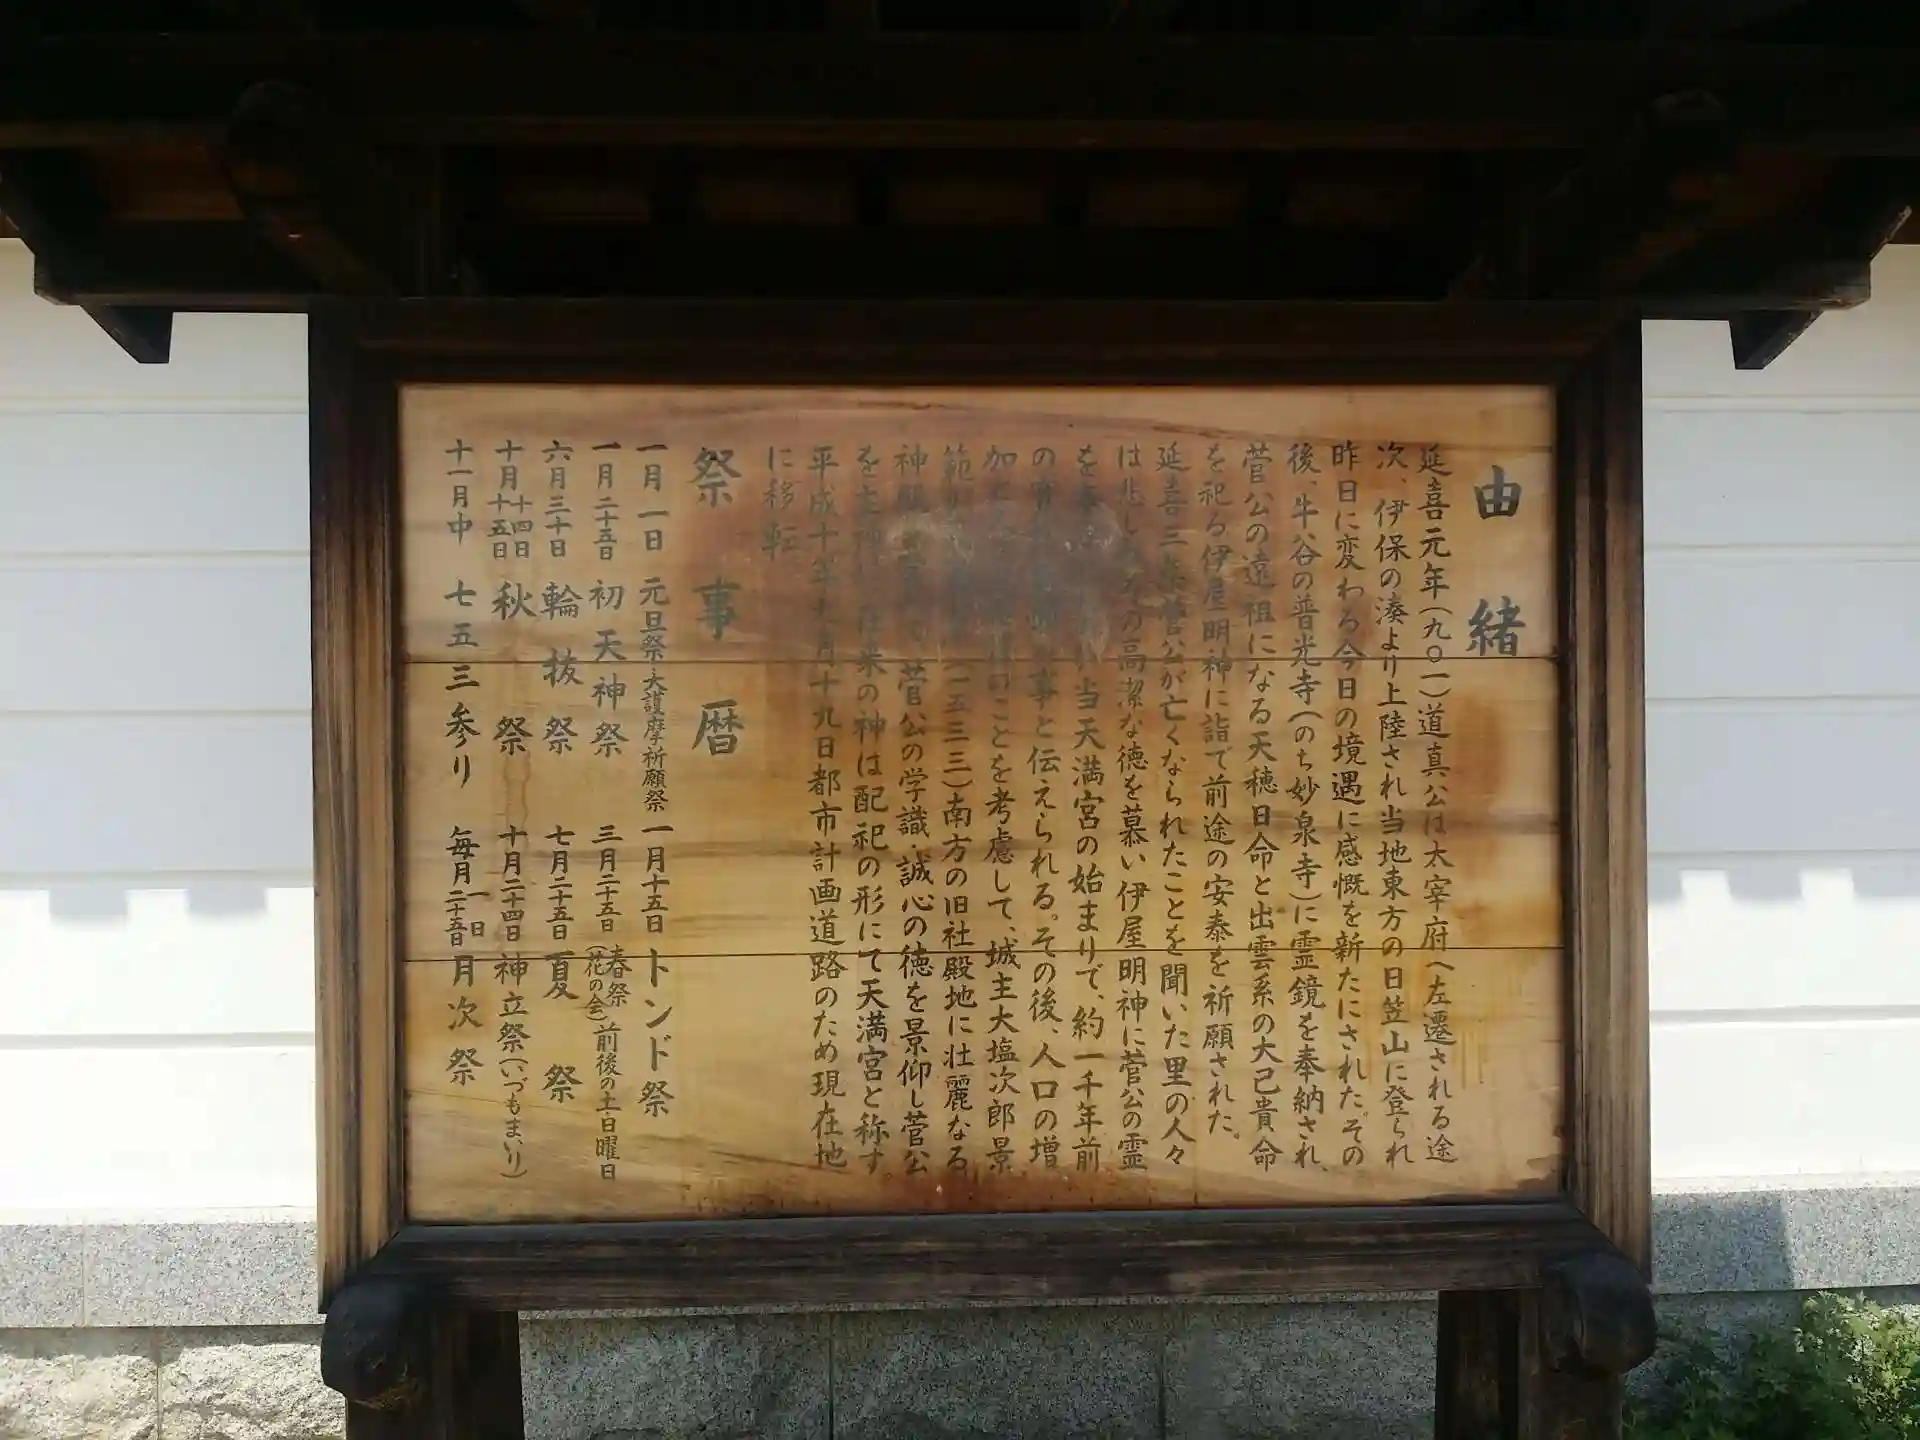 由緒
延喜元年(九〇一)道真公は太宰府へ左遷される途
次、伊保の湊より上陸され当地東方の日笠山に登られ
昨日に変わる今日の境遇に感慨を新たにされた。その
後、牛谷の普光寺(のち妙泉寺)に霊鏡を奉納され、
菅公の遠祖になる天穂日命と出雲系の大己貴命
を祀る伊屋明神に詣で前途の安泰を祈願された。
延喜三年菅公が亡くなられたことを聞いた里の人々
は悲しみその高潔な徳を慕い伊屋明神に菅公の霊
を 当天満宮の始まりで、約一千年前
の 事と伝えられる。その後、人口の増
加 のことを考慮して、城主大塩次郎景
範 (一五三三)南方の旧社殿地に壮麗なる
神殿 菅公の学識・誠心の徳を景仰し菅公
を主神に在来の神は配祀の形にて天満宮と称す。
平成十年七月十九日都市計画道路のため現在地
に移転
祭事暦
一月一日 元旦祭・大護摩祈願祭 一月十五日 トンド祭
一月二十五日 初天神祭 三月二十五日 春祭(花の会)前後の土・日曜日
六月三十日 輪抜祭 七月二十五日 夏祭
十月十四日十五日 秋祭 十月二十四日 神立祭(いづもまいり)
十一月中 七五三参り 毎月一日二十五日 月次祭